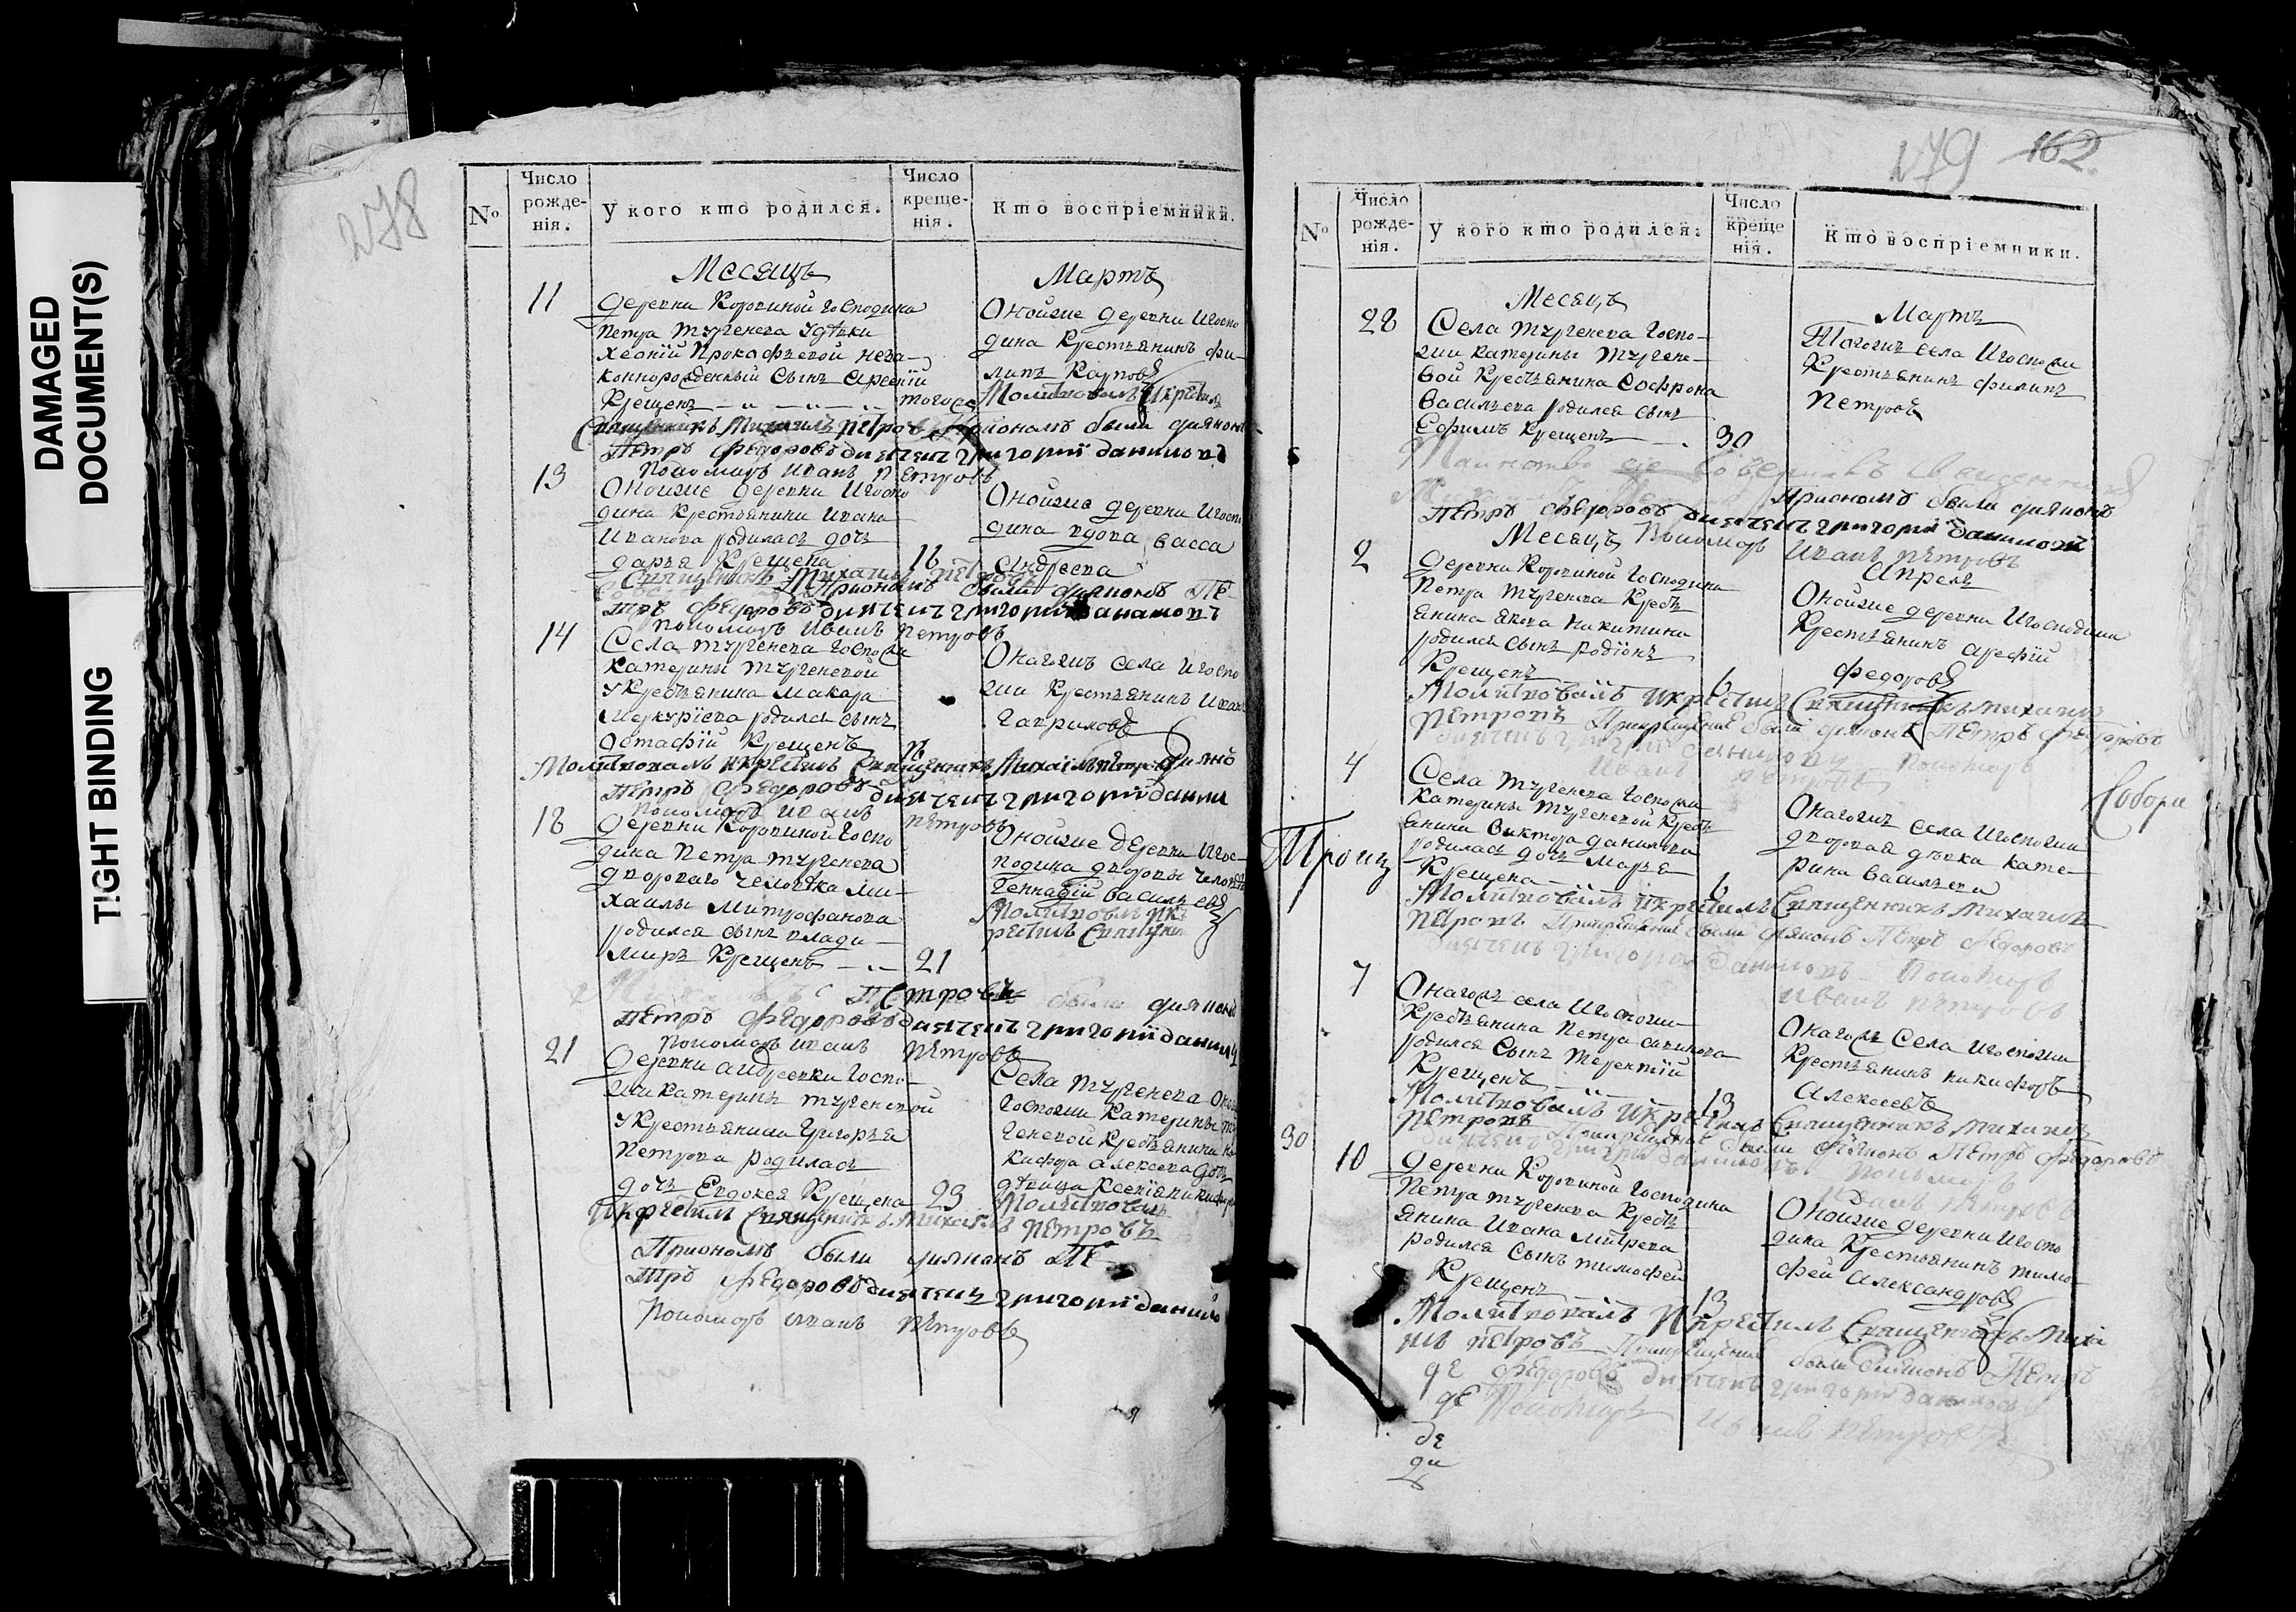 DAMAGED
DOCUMENT(S)
TIGHT BINDING
278
№
Число рожде-нія.
У кого кто родился.
Число креще-нія.
Кто воспріемники.
Месяцъ
Мартъ
11
деревни Коровиной Господина
Петра Тургенева У девки
Прокофьевой неза-
коннорожденный Сынъ Арсеній
Крещенъ
того же
Оной же деревни И госпо
дина Крестьянинъ Фи-
липъ Карповъ
Молитвовалъ И крестилъ
Священникъ Михаилъ Петровъ были диаконъ
Петръ Федоровъ дьячекъ григорій данилов
Пономарь Иванъ Петровъ
13
Оной же деревни И госпо
дина Крестьянина Ивана
Иванова родилась дочь
дарья Крещена
16
Оной же деревни И госпо
дина вдова Васса
Андреева
Священникъ Михаилъ Петровъ
были диаконъ Пе-
тръ Федоровъ дьячекъ григорій данилов
Пономарь Иванъ Петровъ
14
Села Тургенева Госпожи
Катерины Тургеневой
У Крестьянина Макара
Меркуріева родился сынъ
Остафій Крещенъ
Онагожъ села И госпо
жи Крестьянинъ Иванъ
Гавриловъ
Молитвовалъ И крестилъ Священникъ Михаилъ Петровъ
Петръ Федоровъ дьячекъ григорій данил
Пономарь Иванъ Петровъ
18
деревни Коровиной Госпо
дина Петра Тургенева
дворового человека Ми-
хаилы Митрофанова
родился сынъ Влади-
миръ Крещенъ
21
Оной же деревни И гос-
подина дворовы человекъ
Геннадій Васильевъ
Молитвовалъ И к
рестилъ Священ
Петровъ были диаконъ
Петръ Федоровъ дьячекъ григорій данил
Пономарь Иванъ Петровъ
21
деревни Андреевки Госпо-
жи Катерины Тургеневой
У Крестьянина Григорья
Петрова родилась
дочь Евдокея Крещена
23
Села Тургенева
Госпожи Катерины Тур
геневой Крестьянина Ни
кифора Алексеева дочь
девица Ксенія
Молитвовалъ
И крестилъ Священникъ Михаилъ Петровъ
были диаконъ Пе
тръ Федоровъ дьячекъ григорій данило
Пономарь Иванъ Петровъ
279 162
№
Число рожде-нія.
У кого кто родился:
Число креще нія.
Кто воспріемники.
Месяцъ
Мартъ
28
Села Тургенева Госпо-
жи Катерины Тургене-
вой Крестьянина Софрона
Васильева родился сынъ
Ефимъ Крещенъ
30
Тогожъ села И госпожи
Крестьянинъ Филипъ
Петровъ
Таинство сіе
были диаконъ
Петръ Федоровъ дьячекъ григорій данилов
Пономарь Иванъ Петровъ
Месяцъ
Апрель
2
деревни Коровиной Господина
Петра Тургенева Кресть
янина Якова Никитина
родился сынъ Родіонъ
Крещенъ
6
Оной же деревни И господина
Крестьянинъ Арефій
Федоровъ
Молитвовалъ И крестилъ Священникъ Михаилъ
Петровъ При крещеніи были диаконъ Петръ Федоровъ
Пономарь
Иванъ Петровъ
4
Села Тургенева Госпожи
Катерины Тургеневой Кресть
янина Виктора Данилова
родилась дочь Марья
Крещена
6
Онагожъ села И госпожи
дворовая девка Кате-
рина Васильева
Собори
Троиц
Молитвовалъ И крестилъ Священникъ Михаилъ
Петровъ При крещеніи были диаконъ Петръ Федоровъ
дьячекъ григорій данилов Пономарь
Иванъ Петровъ
7
Онагожъ села И госпожи
Крестьянина Петра
родился сынъ Терентій
Крещенъ
13
Онагожъ Села И госпожи
Крестьянинъ Никифоръ
Алексеевъ
Молитвовалъ И крестилъ Священникъ Михаилъ
Петровъ При крещеніи были диаконъ Петръ Федоровъ
Пономарь
Иванъ Петровъ
30
10
деревни Коровиной Господина
Петра Тургенева Кресть
янина Ивана
родился Сынъ Тимофей
Крещенъ
13
Оной же деревни И госпо
дина Крестьянинъ Тимо-
фей Александровъ
Молитвовалъ И крестилъ Священникъ Миха
илъ Петровъ При крещеніи были диаконъ Петръ
Федоровъ дьячекъ григорій данилов
Пономарь Иванъ Петровъ